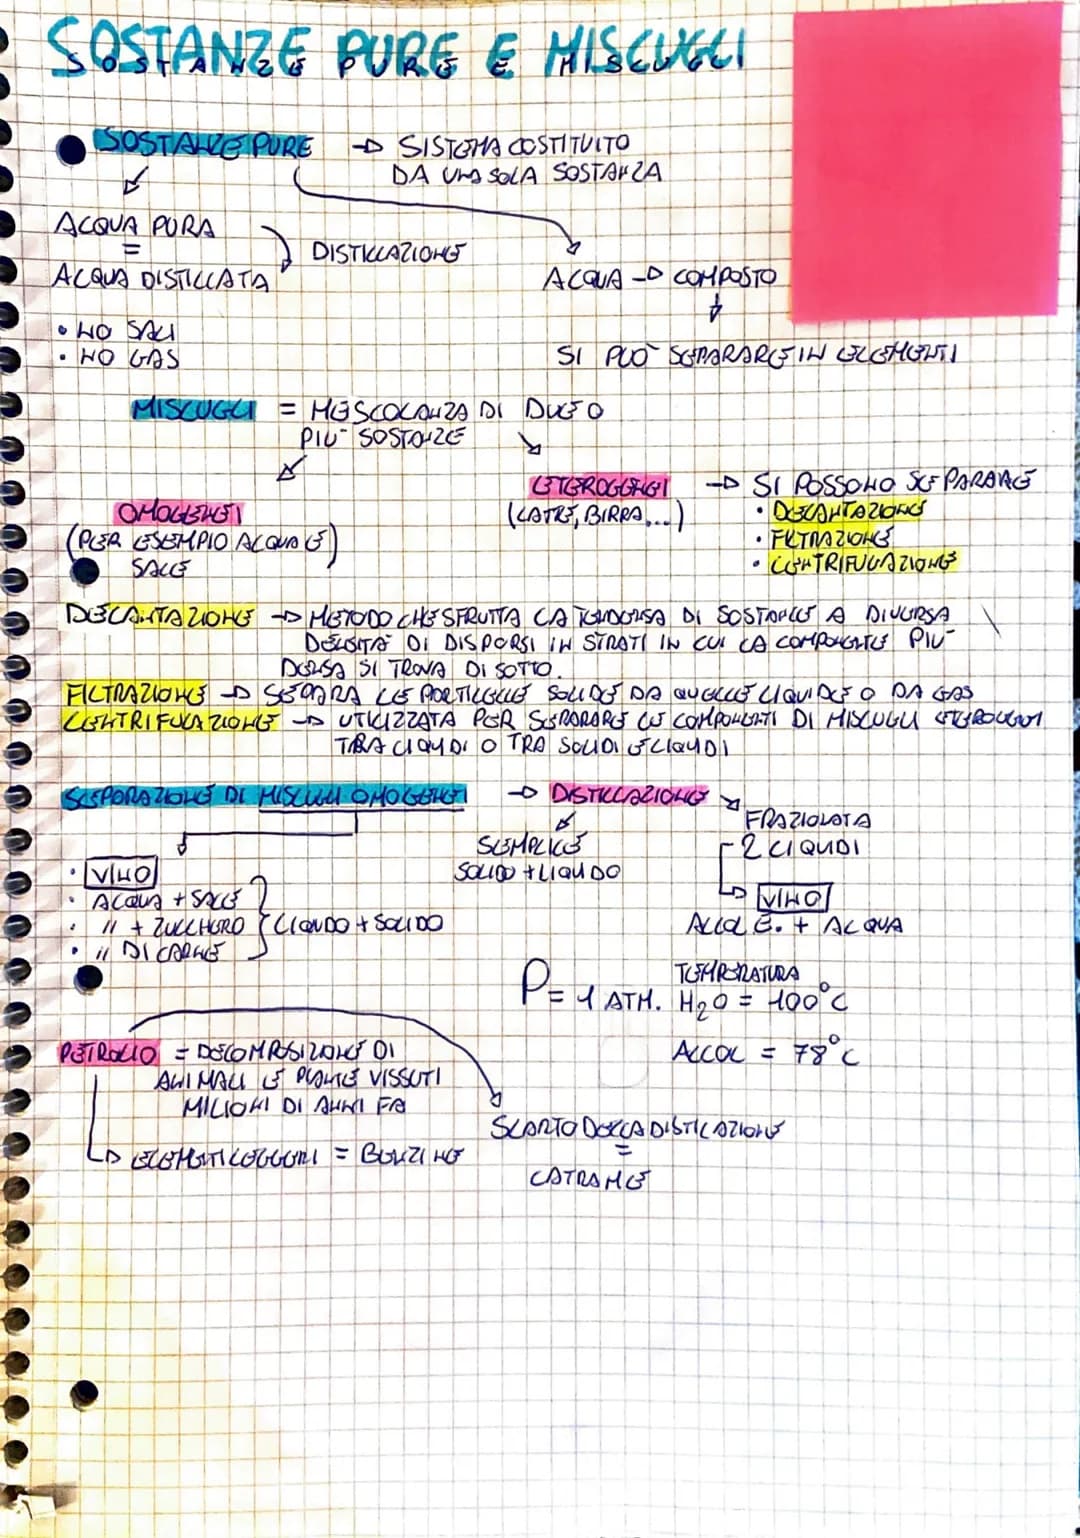 SOSTANZE PURE E MISCUGLI
SOSTANZE PURE → SISTEMA COSTITUITO
DA UNA SOLA SOSTANZA
ACQUA PURA
=
DISTILLAZIONE
ACQUA DISTILLATA
ACQUA → COMPOSTO
• NO SALI
• NO GAS
SI PUÒ SEPARARE IN ELEMENTI
MISCUGLI = MESCOLANZA DI DUE O
PIÙ SOSTANZE
ETEROGENEI → SI POSSONO SEPARARE
(LATTE, BIRRA,...)
• DECANTAZIONE
• FILTRAZIONE
• CENTRIFUGAZIONE
OMOGENEI
(PER ESEMPIO ACQUA E
SALE)
DECANTAZIONE → METODO CHE SFRUTTA LA TENDENZA DI SOSTANZE A DIVERSA
DENSITÀ DI DISPORSI IN STRATI IN CUI LA COMPONENTE PIÙ
DENSA SI TROVA DI SOTTO.
FILTRAZIONE → SEPARA LE PARTICELLE SOLIDE DA QUELLE LIQUIDE O DA GAS
CENTRIFUGAZIONE → UTILIZZATA PER SEPARARE LE COMPONENTI DI MISCUGLI ETEROGENEI
TRA LIQUIDI O TRA SOLIDI E LIQUIDI
SEPARAZIONE DI MISCUGLI OMOGENEI → DISTILLAZIONE
SEMPLICE
SOLIDO + LIQUIDO
FRAZIONATA
2 LIQUIDI
VINO
ALCOL E. + ACQUA
• VINO
• ACQUA + SALE
• // + ZUCCHERO
• // DI CARNE
LIQUIDO + SOLIDO
TEMPERATURA
P = 1 ATM. H₂O = 100°C
ALCOL = 78°C
PETROLIO = DECOMPOSIZIONE DI
ANIMALI E PIANTE VISSUTI
MILIONI DI ANNI FA
ELEMENTI LEGGERI = BENZINE
SCARTO DELLA DISTILAZIONE
=
CATRAME